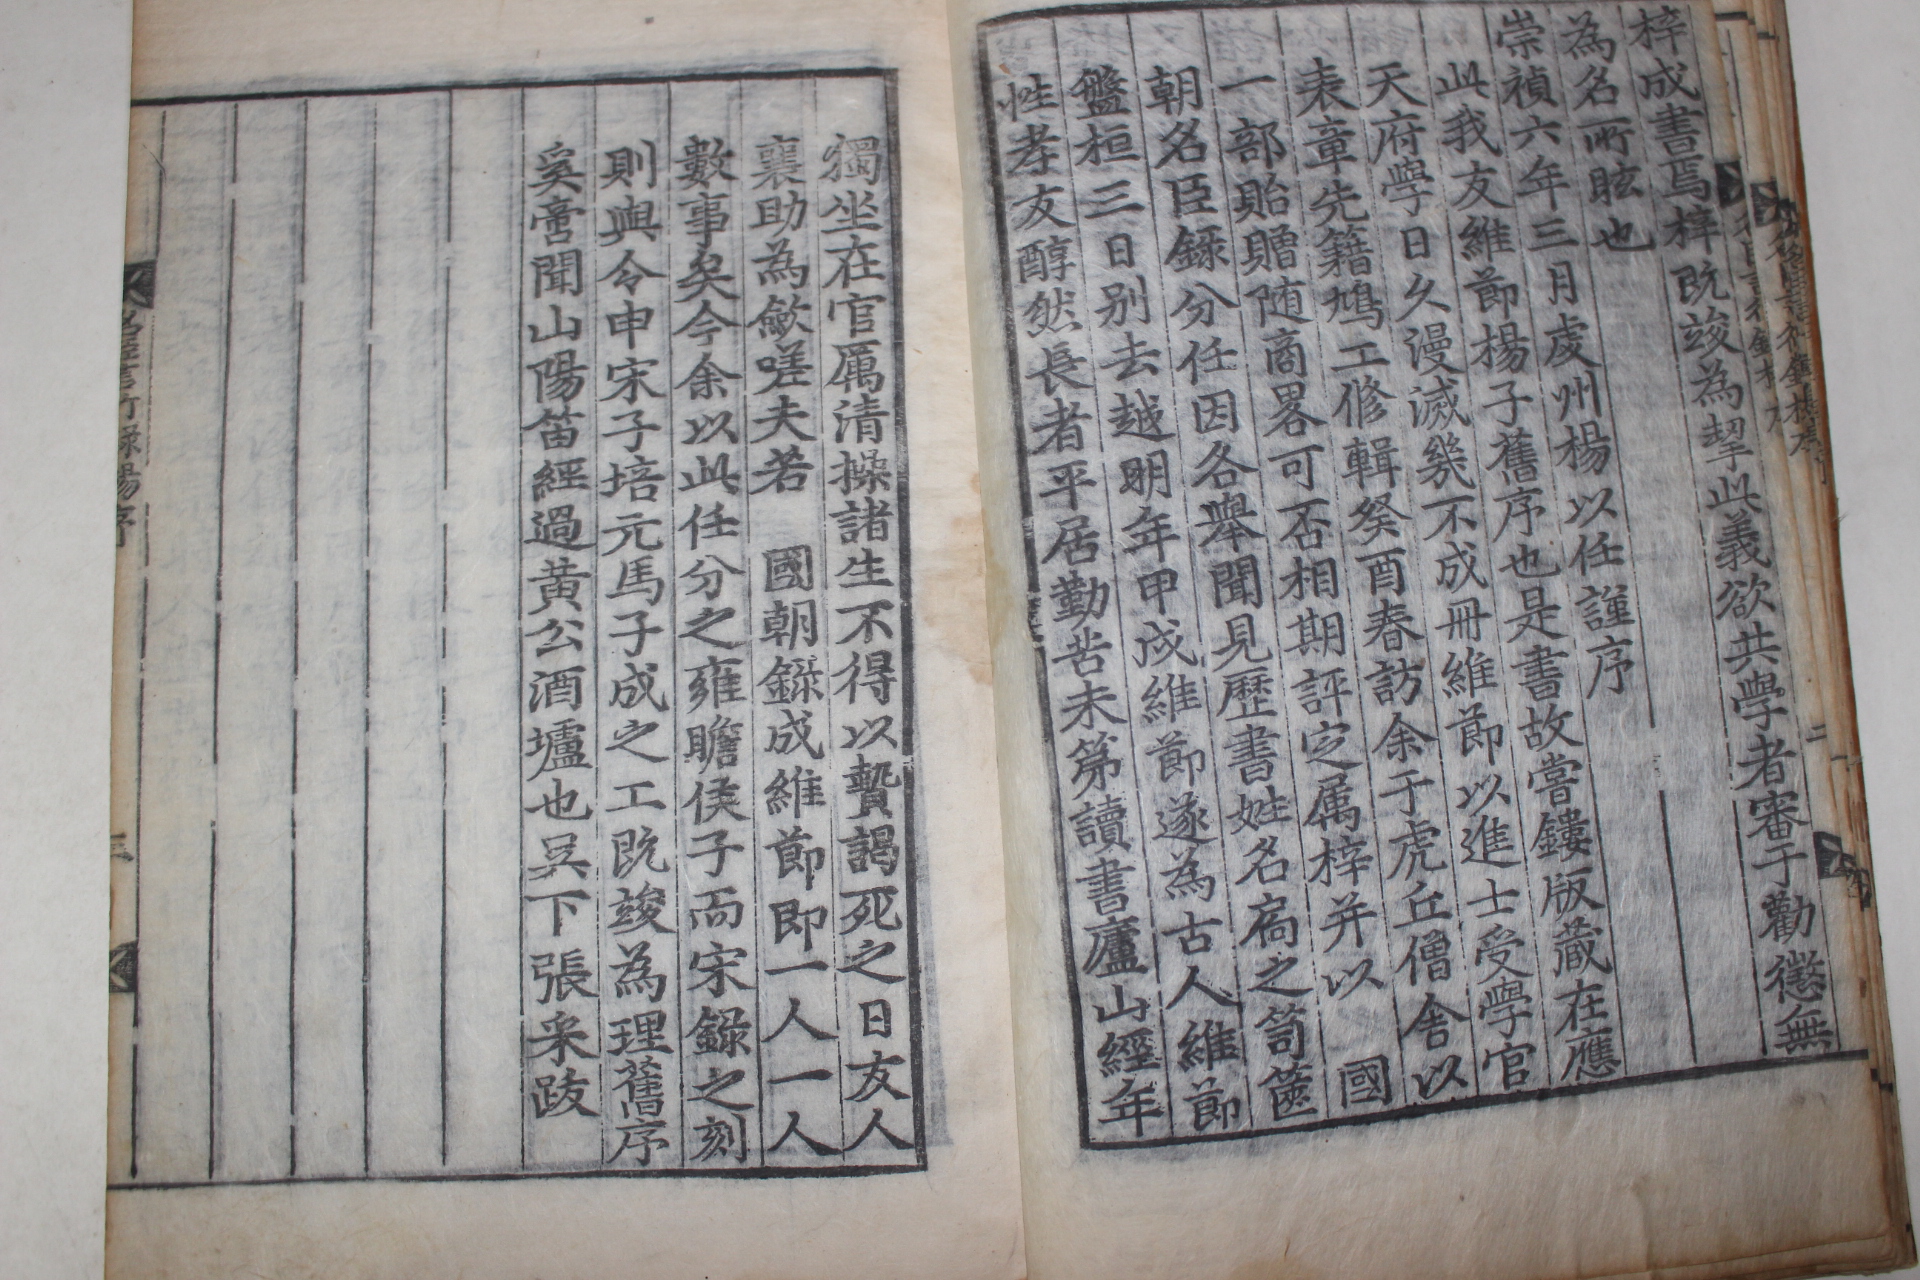 梓成書焉梓既竣為挈此義欲共學者審于勸懲無
為名所眩也
崇禎六年三月虔州楊以任謹序
此我友維節楊子舊序也是書故嘗鏤版蔵在應
天府學日久漫滅幾不成冊維節以進士受學官
表章先籍鳩工修輯癸酉春訪余于虎丘僧舎以
一部貽贈随商畧可否相期評定属梓并以 國
朝名臣錄分任因各舉聞見歷書姓名扃之笥篋
盤桓三日别去越明年甲戌維節遂為古人維節
性孝友醇然長者平居勤苦未第讀書廬山經年
獨坐在官厲清操諸生不得以贄謁死之日友人
襄助為斂嗟夫若 國朝錄成維節即一人一人
數事矣今余以此任分之雍瞻侯子而宋録之刻
則與令申宋子培元馬子成之工既竣為理舊序
奚啻聞山陽笛經過黄公酒壚也吴下張采跋
名臣言行録楊序
三
二